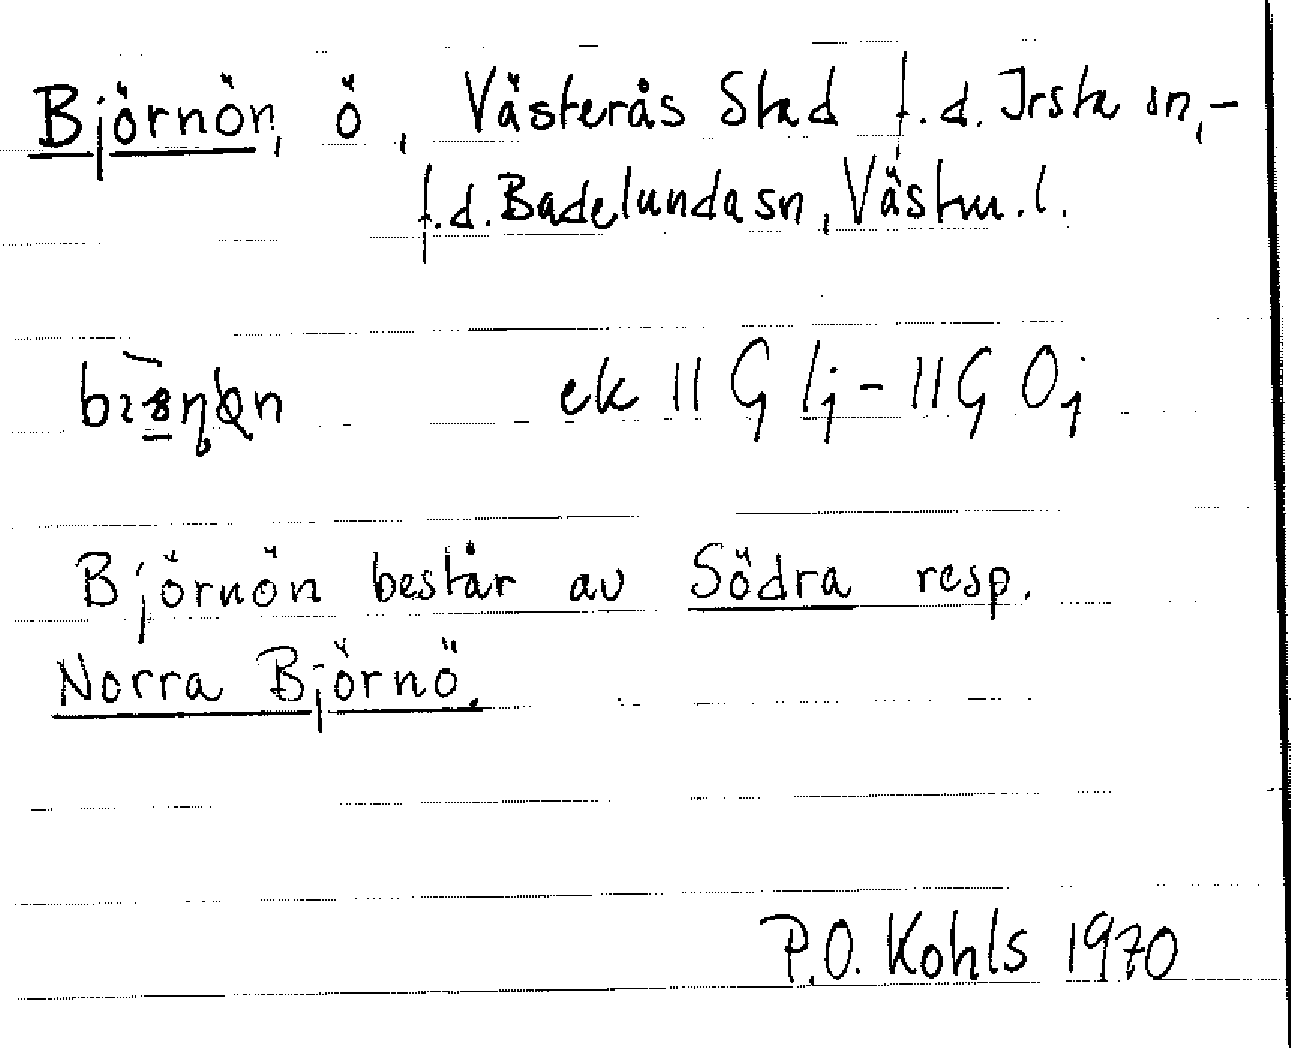 Björnön, ö, Västerås Stad f.d. Irsta sn,-
f.d. Badelunda sn, Västm. l.
ek 11 G 1j - 11 G 0j
Björnön består av Södra resp.
Norra Björnö.
P.O. Kohls 1970